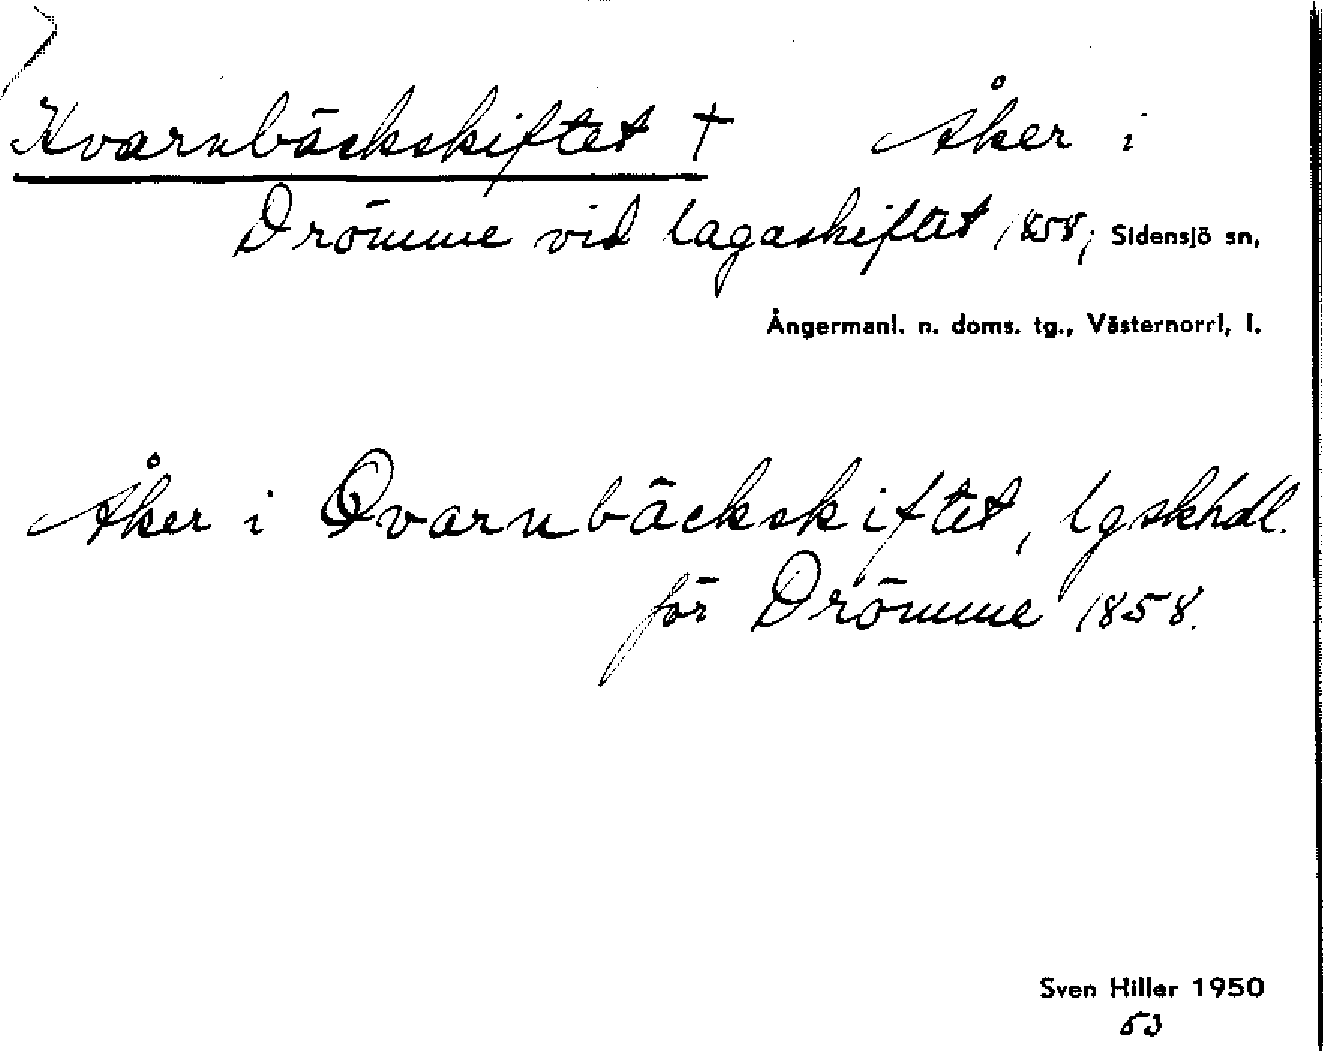 Kvarnbäckskiftet † Åker i
Drömme vid lagaskiftet 1858; Sidensjö sn,
Ångermanl. n. doms. tg., Västernorrl, l.
Åker i Qvarnbäckskiftet, lgskhdl.
för Drömme 1858.
Sven Hiller 1950
53